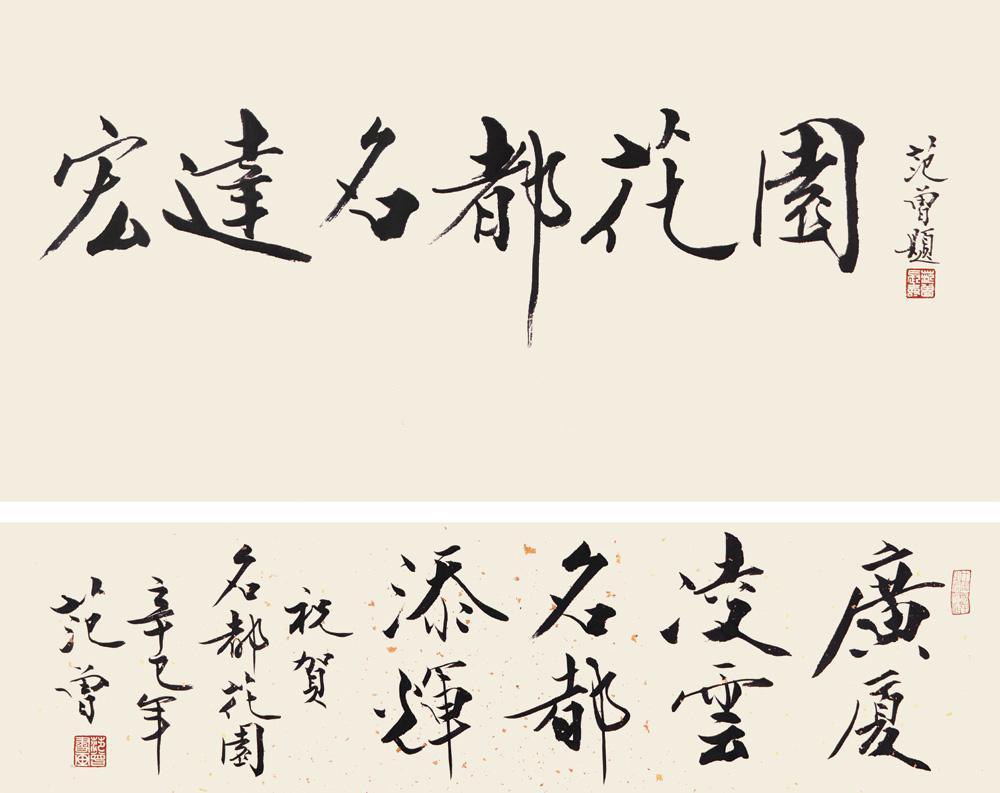 宏達名都花園
范曾題
廣厦
凌雲
名都
添輝
祝賀
名都花園
辛巳年
范曾